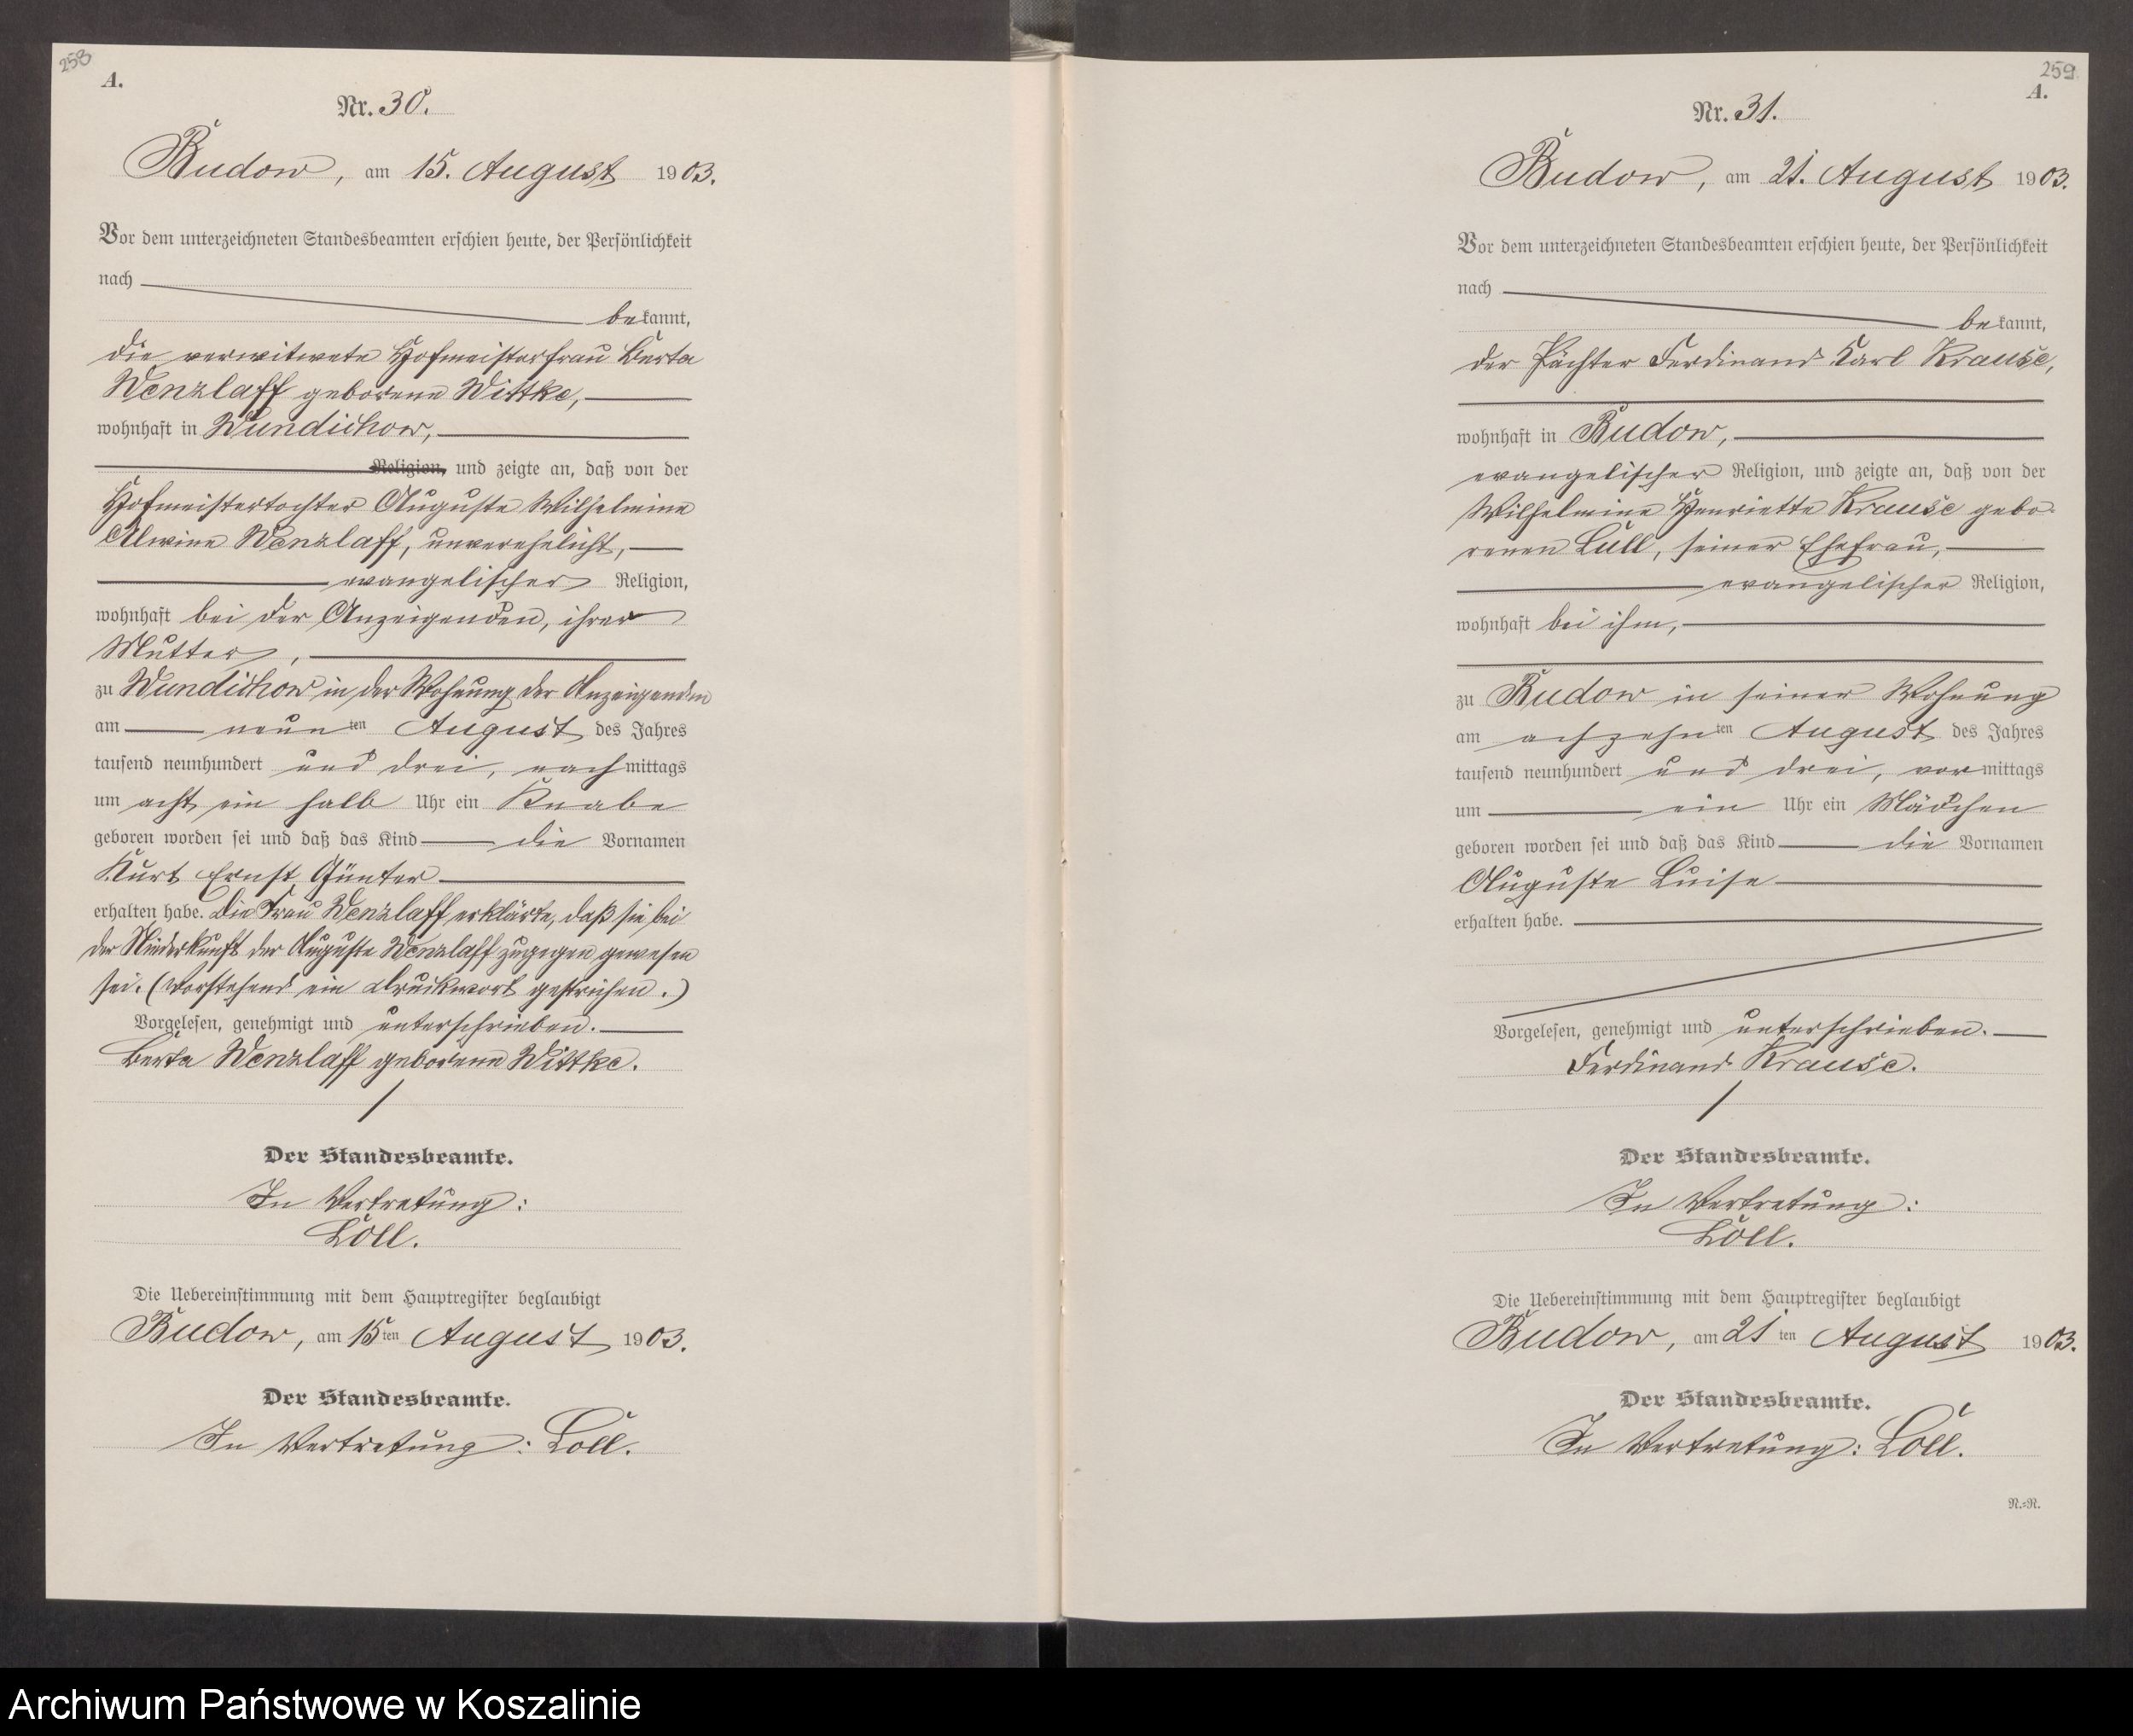 258
A.
Nr. 30.
Budow, am 15. August 1903.
Vor dem unterzeichneten Standesbeamten erschien heute, der Persönlichkeit
nach
bekannt,
die verwitwete Hofmeisterfrau Berta
Wenzlaff geborene Wittke,
wohnhaft in Wundichow,
Religion, und zeigte an, daß von der
Hofmeistertochter Auguste Wilhelmine
Alwine Wenzlaff, unverehelicht,
evangelischer Religion,
wohnhaft bei der Anzeigenden, ihrer
Mutter,
zu Wundichow in der Wohnung der Anzeigenden
am neunten August des Jahres
tausend neunhundert und drei, nachmittags
um acht ein halb Uhr ein Knabe
geboren worden sei und daß das Kind die Vornamen
Kurt Ernst Günter
erhalten habe. Die Frau Wenzlaff erklärte, daß sie bei
der Niederkunft der Auguste Wenzlaff zugegen gewesen
sei. (Vorstehend ein Druckwort gestrichen.)
Vorgelesen, genehmigt und unterschrieben.
Berta Wenzlaff geborene Wittke.
Der Standesbeamte.
In Vertretung:
Löll.
Die Uebereinstimmung mit dem Hauptregister beglaubigt
Budow, am 15ten August 1903.
Der Standesbeamte.
In Vertretung: Löll.
259
A.
Nr. 31.
Budow, am 21. August 1903.
Vor dem unterzeichneten Standesbeamten erschien heute, der Persönlichkeit
nach
bekannt,
der Pächter Ferdinand Karl Krause,
wohnhaft in Budow,
evangelischer Religion, und zeigte an, daß von der
Wilhelmine Henriette Krause gebo-
renen Lüll, seiner Ehefrau,
evangelischer Religion,
wohnhaft bei ihm,
zu Budow in seiner Wohnung
am achzehnten August des Jahres
tausend neunhundert und drei, vormittags
um ein Uhr ein Mädchen
geboren worden sei und daß das Kind die Vornamen
Auguste Luise
erhalten habe.
Vorgelesen, genehmigt und unterschrieben.
Ferdinand Krause.
Der Standesbeamte.
In Vertretung:
Löll.
Die Uebereinstimmung mit dem Hauptregister beglaubigt
Budow, am 21ten August 1903.
Der Standesbeamte.
In Vertretung: Löll.
N.=N.
Archiwum Państwowe w Koszalinie